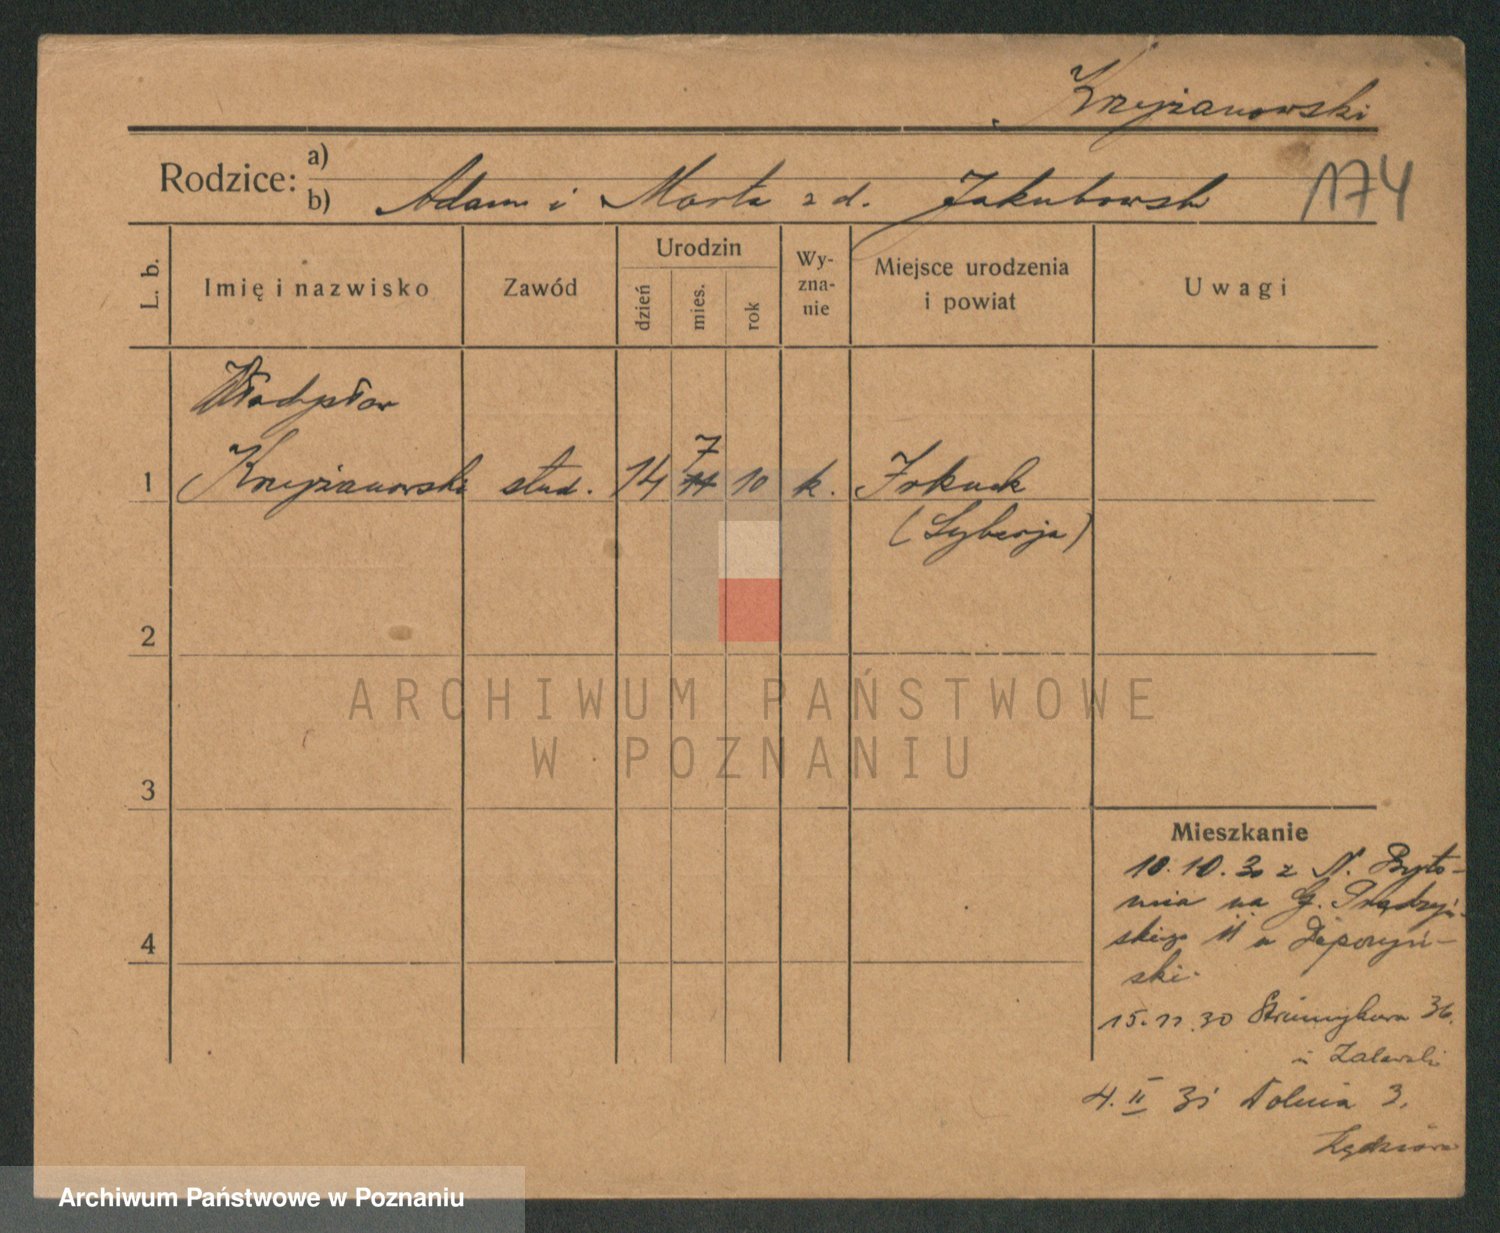 Krzyżanowski
Rodzice: a)
b) Adam i Marta z d. Jakubowsk
174
L. b. Imię i nazwisko Zawód Urodzin dzień mies. rok Wyznanie Miejsce urodzenia i powiat Uwagi
Władysław
1 Krzyżanowski stud. 14 7 11 10 k. Irkuck
(Syberja)
2
ARCHIWUM PAŃSTWOWE
W POZNANIU
3
Mieszkanie
10.10.30 z N. Byto-
mia na G. Prądzyń-
skiego 11 u
ski.
4
15.11.30 Strumykowa 36.
u Zalewski
4. II 31 Wolnia 3.
Archiwum Państwowe w Poznaniu